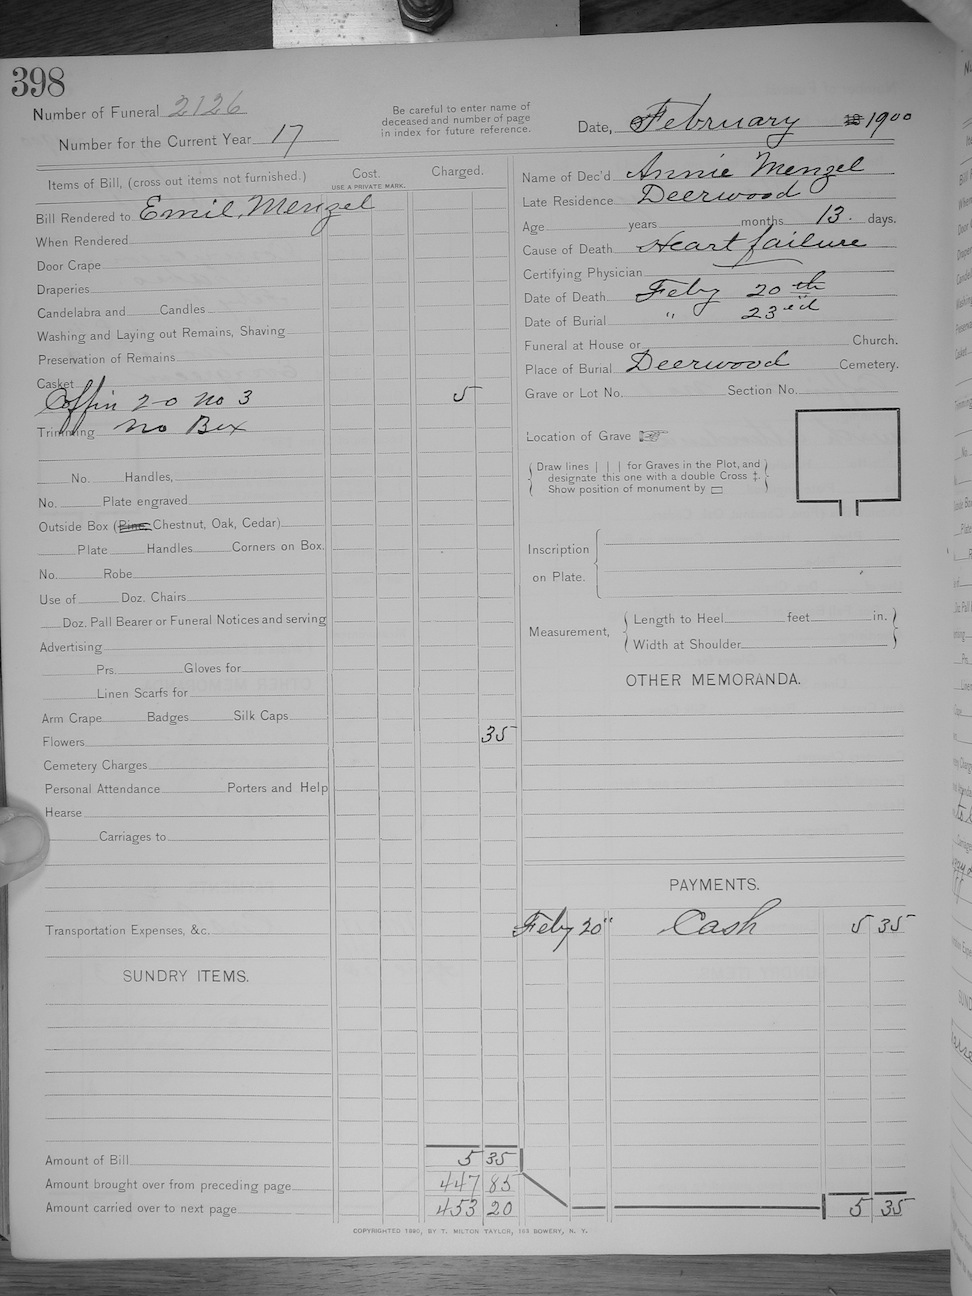 398
Number of Funeral 2126
Number for the Current Year 17
Be careful to enter name of
deceased and number of page
in index for future reference.
Date, February 1900
Items of Bill, (cross out items not furnished.)
Cost.
USE A PRIVATE MARK.
Charged.
Bill Rendered to Emil Menzel
When Rendered
Door Crape
Draperies
Candelabra and Candles
Washing and Laying out Remains, Shaving
Preservation of Remains
Casket
Coffin 2-0 No 3 5
Trimming No Box
No. Handles,
No. Plate engraved
Outside Box (Pine, Chestnut, Oak, Cedar)
Plate Handles Corners on Box.
No. Robe
Use of Doz. Chairs
Doz. Pall Bearer or Funeral Notices and serving
Advertising
Prs. Gloves for
Linen Scarfs for
Arm Crape Badges Silk Caps
Flowers 35
Cemetery Charges
Personal Attendance Porters and Help
Hearse
Carriages to
Transportation Expenses, &c.
SUNDRY ITEMS.
Amount of Bill 5 35
Amount brought over from preceding page 447 85
Amount carried over to next page 453 20
Name of Dec'd Annie Menzel
Late Residence Deerwood
Age years months 13. days.
Cause of Death Heart failure
Certifying Physician
Date of Death Feby 20th
Date of Burial " 23
Funeral at House or Church.
Place of Burial Deerwood Cemetery.
Grave or Lot No. Section No.
Location of Grave
Draw lines | | | for Graves in the Plot, and
designate this one with a double Cross ‡.
Show position of monument by ▭
Inscription
on Plate.
Measurement,
Length to Heel feet in.
Width at Shoulder
OTHER MEMORANDA.
PAYMENTS.
Feby 20" Cash 5 35
5 35
COPYRIGHTED 1890, BY T. MILTON TAYLOR, 168 BOWERY, N. Y.